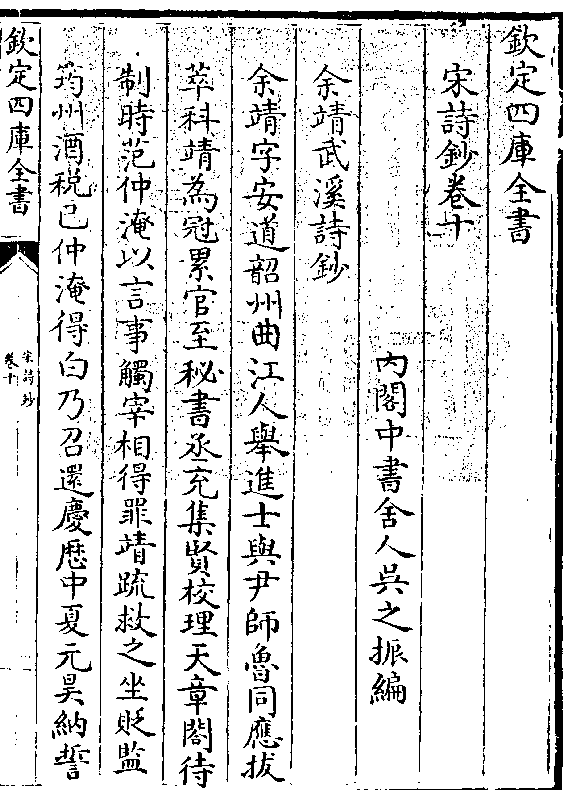 欽定四庫全書
宋詩鈔卷十
內閣中書舍人吳之振編
余靖武溪詩鈔
余靖字安道韶州曲江人舉進士與尹師魯同應拔
萃科靖為冠累官至秘書丞充集賢校理天章閣待
制時范仲淹以言事觸宰相得罪靖疏救之坐貶監
筠州酒税已仲淹得白乃召還慶歴中夏元昊納誓
欽定四庫全書
宋詩鈔
卷十